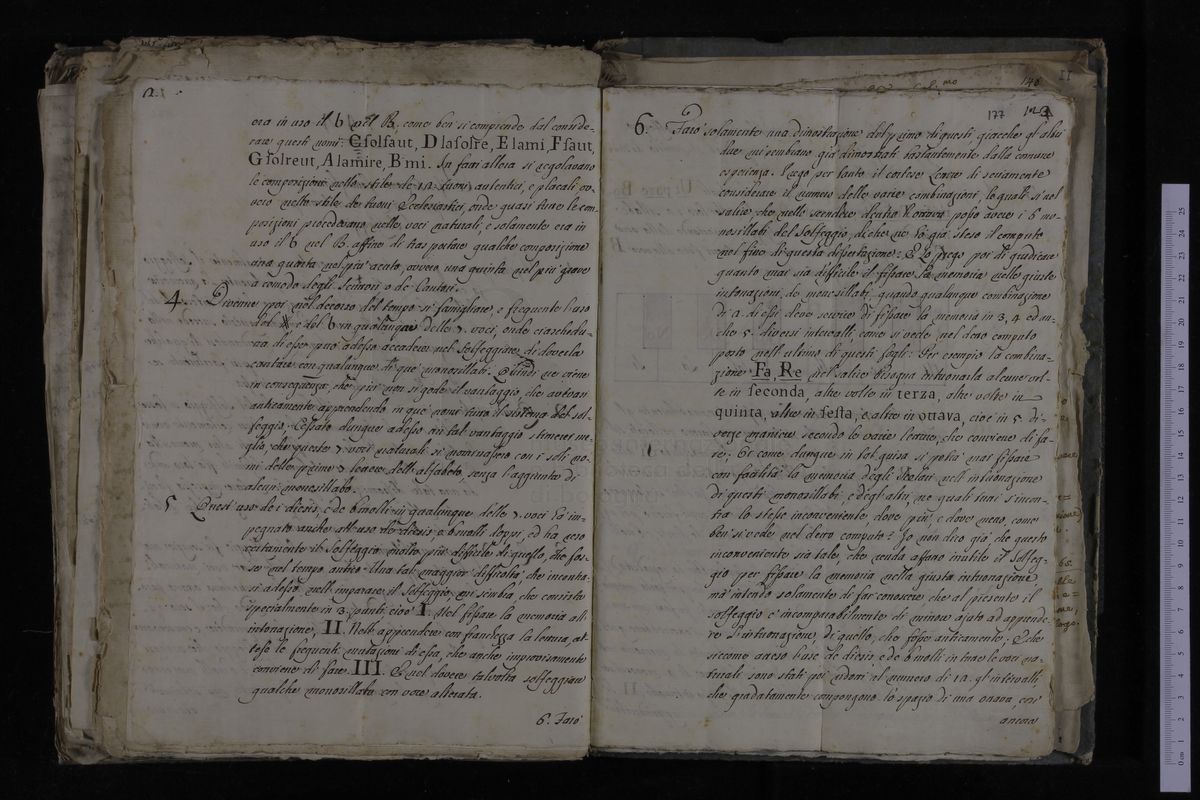 2.
era in uso il b nel B, come ben si comprende dal conside-
rare questi nomi: Csolfaut, Dlasolre, Elami, Ffaut,
Gsolreut, Alamire, Bmi. In fatti allora si regolavano
le composizioni nello stile de 12 tuoni autentici, e placali, ov-
vero nello stile de tuoni Ecclesiastici, onde quasi tutte le com-
posizioni procedevano nelle voci naturali, e solamente era in
uso il b nel B. affine di trasportare qualche composizione
una quarta nel più acuto, ovvero una quinta nel più grave
a comodo degli o de Cantori.
4. Divenne poi nel decorso del tempo si famigliare, e frequente l'uso
del e del b in qualunque delle 7. voci, onde ciaschedu-
na di esse può adesso accadere nel Solfeggiare di doverla
cantare con qualunque di que' monosillabi. Quindi ne viene
in conseguenza, che più non si gode il vantaggio, che avevan
anticamente apprendendo in que' nomi tutto il sistema del sol-
feggio. Cessato dunque adesso un tal vantaggio stimerei me-
glio, che queste 7 voci naturali si nominassero con i soli no-
mi delle prime 7 lettere dell'alfabeto, senza l'aggiunta di
alcun monosillabo.
5. Quest'uso de i diesis, e de bmolli in qualunque delle 7. voci hà im-
pegnato anche all'uso de diesis, e bmolli doppi, ed ha reso
certamente il Solfeggio molto più difficile di quello, che fos-
se nel tempo antico. Una tal maggior difficoltà, che incontra-
si adesso nell'imparare il Solfeggio mi sembra, che consista
specialmente in 3. punti cioè I. Nel fissare la memoria all'
intonazione, II. Nell'apprendere con franchezza la lettura, at-
tese le frequenti mutazioni di essa, che anche improvisamente
conviene di fare. III. E nel dovere talvolta solfeggiare
qualche monosillabo con voce alterata.
6. Farò
146
177
6. Farò solamente una dimostrazione del primo di questi giacchè gl'altri
due mi sembrano già dimostrati bastantemente dalla comune
esperienza. Prego per tanto il cortese Lettore di seriamente
considerare il numero delle varie combinazioni, le quali si nel
salire, che nello scendere dentro l'ottava possono avere i 6 mo-
nosillabi del Solfeggio, di che ne hò già steso il computo
nel fine di questa dissertazione: E Lo prego poi di giudicare
quanto mai sia difficile il fissare la memoria nelle giuste
intonazioni de monosillabi, quando qualunque combinazione
di 2. di essi deve servire di fissare la memoria in 3, 4 ed an-
che 5. diversi intervalli, come si vede nel detto computo
posto nell'ultimo di questi fogli. Per esempio la combina-
zione Fa, Re nel salire bisogna intuonarla alcune vol-
te in seconda, altre volte in terza, altre volte in
quinta, altre in sesta, e altre in ottava, cioè in 5. di-
verse maniere secondo le varie letture, che conviene di fa-
re; Or come dunque in tal guisa si potrà mai fissare
con facilità la memoria degli Scolari nell'intuonazione
di questi monosillabi, e degl'altri, ne quali tutti s'incon-
tra lo stesso inconveniente dove più, e dove meno, come
ben si vede nel detto computo? Io non dico già, che questo
inconveniente sia tale, che renda affatto inutile il Solfeg-
gio per fissare la memoria nella giusta intuonazione,
mà intendo solamente di far conoscere che al presente il
solfeggio è incomparabilmente di minore ajuto ad apprende-
re l'intuonazione, di quello, che fosse anticamente. E che
siccome atteso l'uso de diesis, e de bmolli in tutte le voci na-
turali sono stati poi ridotti al numero di 12. gl'intervalli,
che gradatamente compongono lo spazio di una ottava, così
ancora